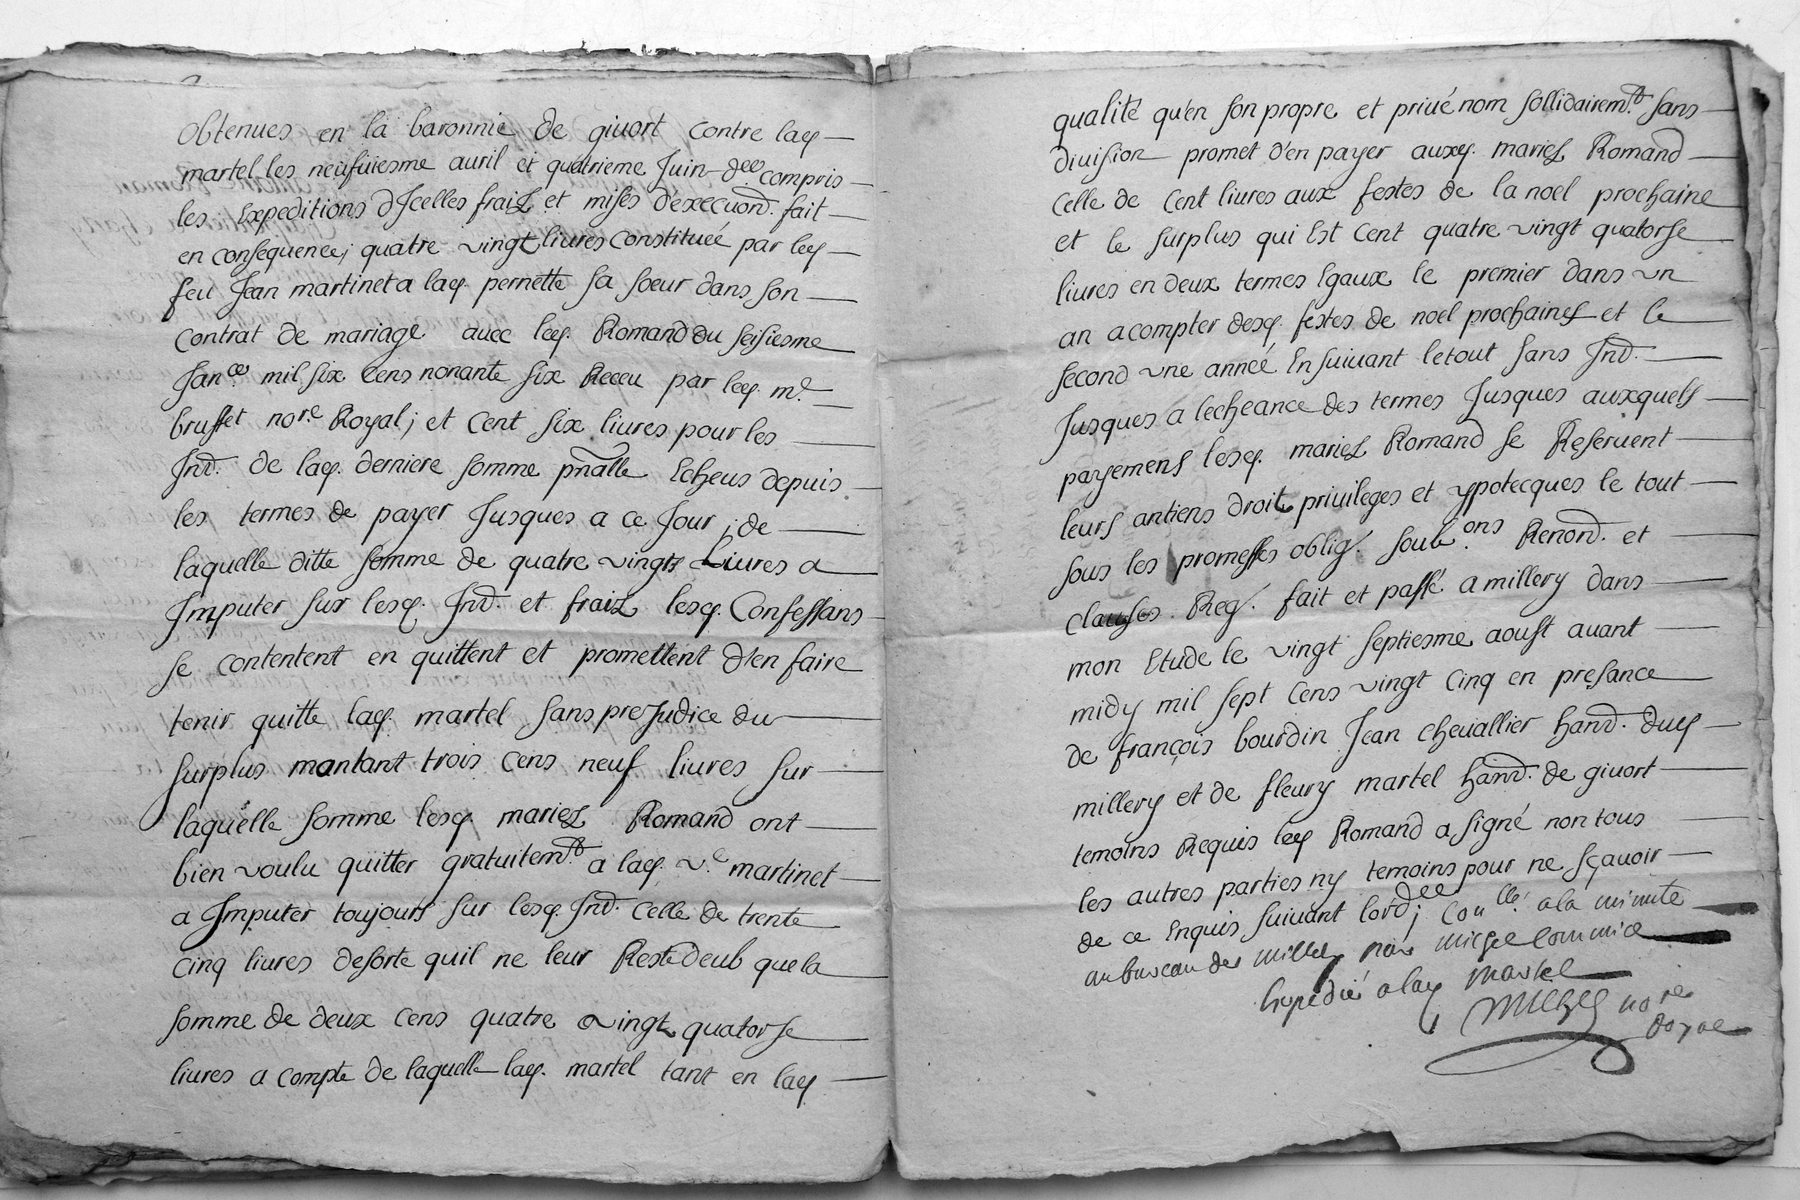 obtenues en la baronnie de givort contre lad.
martel les neufuiesme auril et quatrieme Juin dee compris
les Expeditions dJcelles fraiz et mises d'execuon̄. fait
en consequence; quatre vingt liures constituée par led.
feu Jean martinet a lad. pernette sa soeur dans son
contrat de mariage avec led. Romand du seisiesme
Jan.er mil six cens nonante six Receu par led. m.e
brusset no.re Royal; et cent six liures pour les
Jnt̄. de lad. derniere somme pn̄alle Echeus depuis
les termes de payer Jusques a ce Jour; de
laquelle ditte somme de quatre vingts Liures a
Jmputer sur lesd. Jnt̄. et fraiz lesd. Confessans
se contentent en quittent et promettent d'en faire
tenir quitte lad. martel sans preJudice du
surplus montant trois cens neuf liures sur
laquelle somme lesd. mariez Romand ont
bien voulu quitter gratuitem.t a lad. v.e martinet
a Jmputer toujours sur lesd. Jnt̄. celle de trente
cinq liures desorte quil ne leur Reste deub que la
somme de deux cens quatre vingt quatorse
liures a compte de laquelle lad. martel tant en lad.
qualité qu'en son propre et priué nom sollidairem.t sans
diuision promet d'en payer auxd. mariez Romand
celle de cent liures aux festes de la noel prochaine
et le surplus qui Est cent quatre vingt quatorse
liures en deux termes Egaux le premier dans vn
an a compter desd. festes de noel prochaines et le
second vne année Ensuiuant le tout sans Jnt̄.
Jusques a lecheance des termes Jusques auxquels
payemens lesd. mariez Romand se Reseruent
leurs antiens droit priuileges et ypotecques le tout
sous les promesses oblig. soub.ons Renon̄. et
clauses. Req. fait et passé a millery dans
mon Etude le vingt septiesme aoust auant
midy mil sept cens vingt cinq en presance
de françois bourdin Jean cheuallier han̄t. dud.
millery et de fleury martel han̄t. de giuort
temoins Requis led. Romand a signé non tous
les autres parties ny temoins pour ne sçauoir
de ce Enquis suiuant lord.ee; Con.llé a la minute
au bureau de millery par michel commice
Expedié a lad. martel
michel no.re
Royal